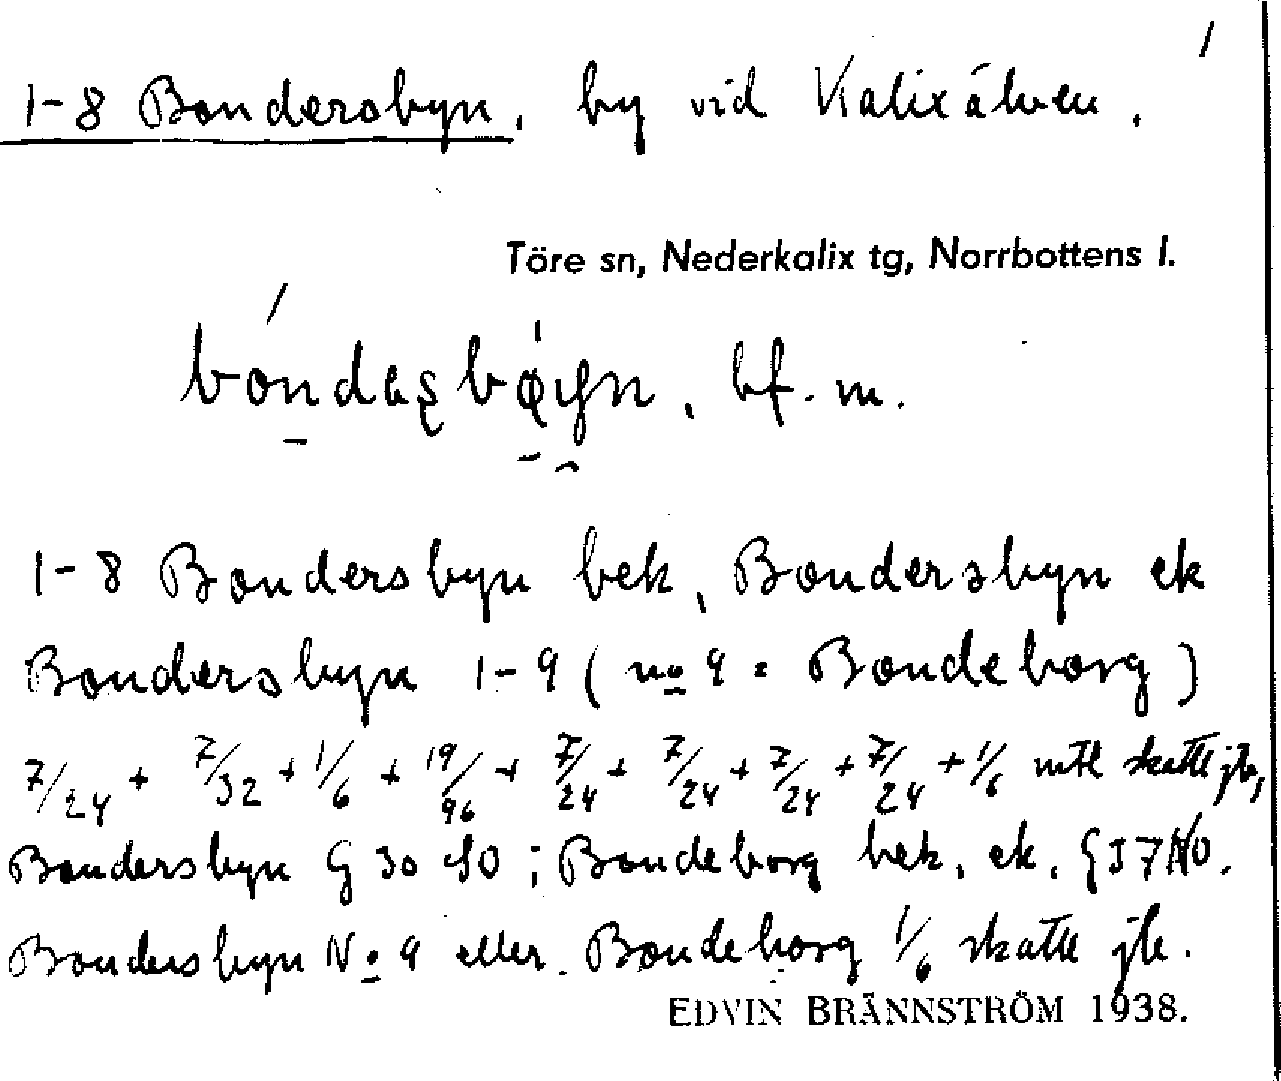 1
1-8 Bondersbyn, by vid Kalixälven.
Töre sn, Nederkalix tg, Norrbottens l.
bf. m.
1-8 Bondersbyn bek, Bondersbyn ek
Bondersbyn 1-9 (no 9 = Bondeborg)
7/24 + 7/32 + 1/6 + 19/96 + 7/24 + 7/24 + 7/24 + 7/24 + 1/6 mtl skatte jb,
Bondersbyn G 30 SO; Bondeborg bek. ek. G 37 NO.
Bondersbyn No 9 eller Bondeborg 1/6 skatte jb.
EDVIN BRÄNNSTRÖM 1938.